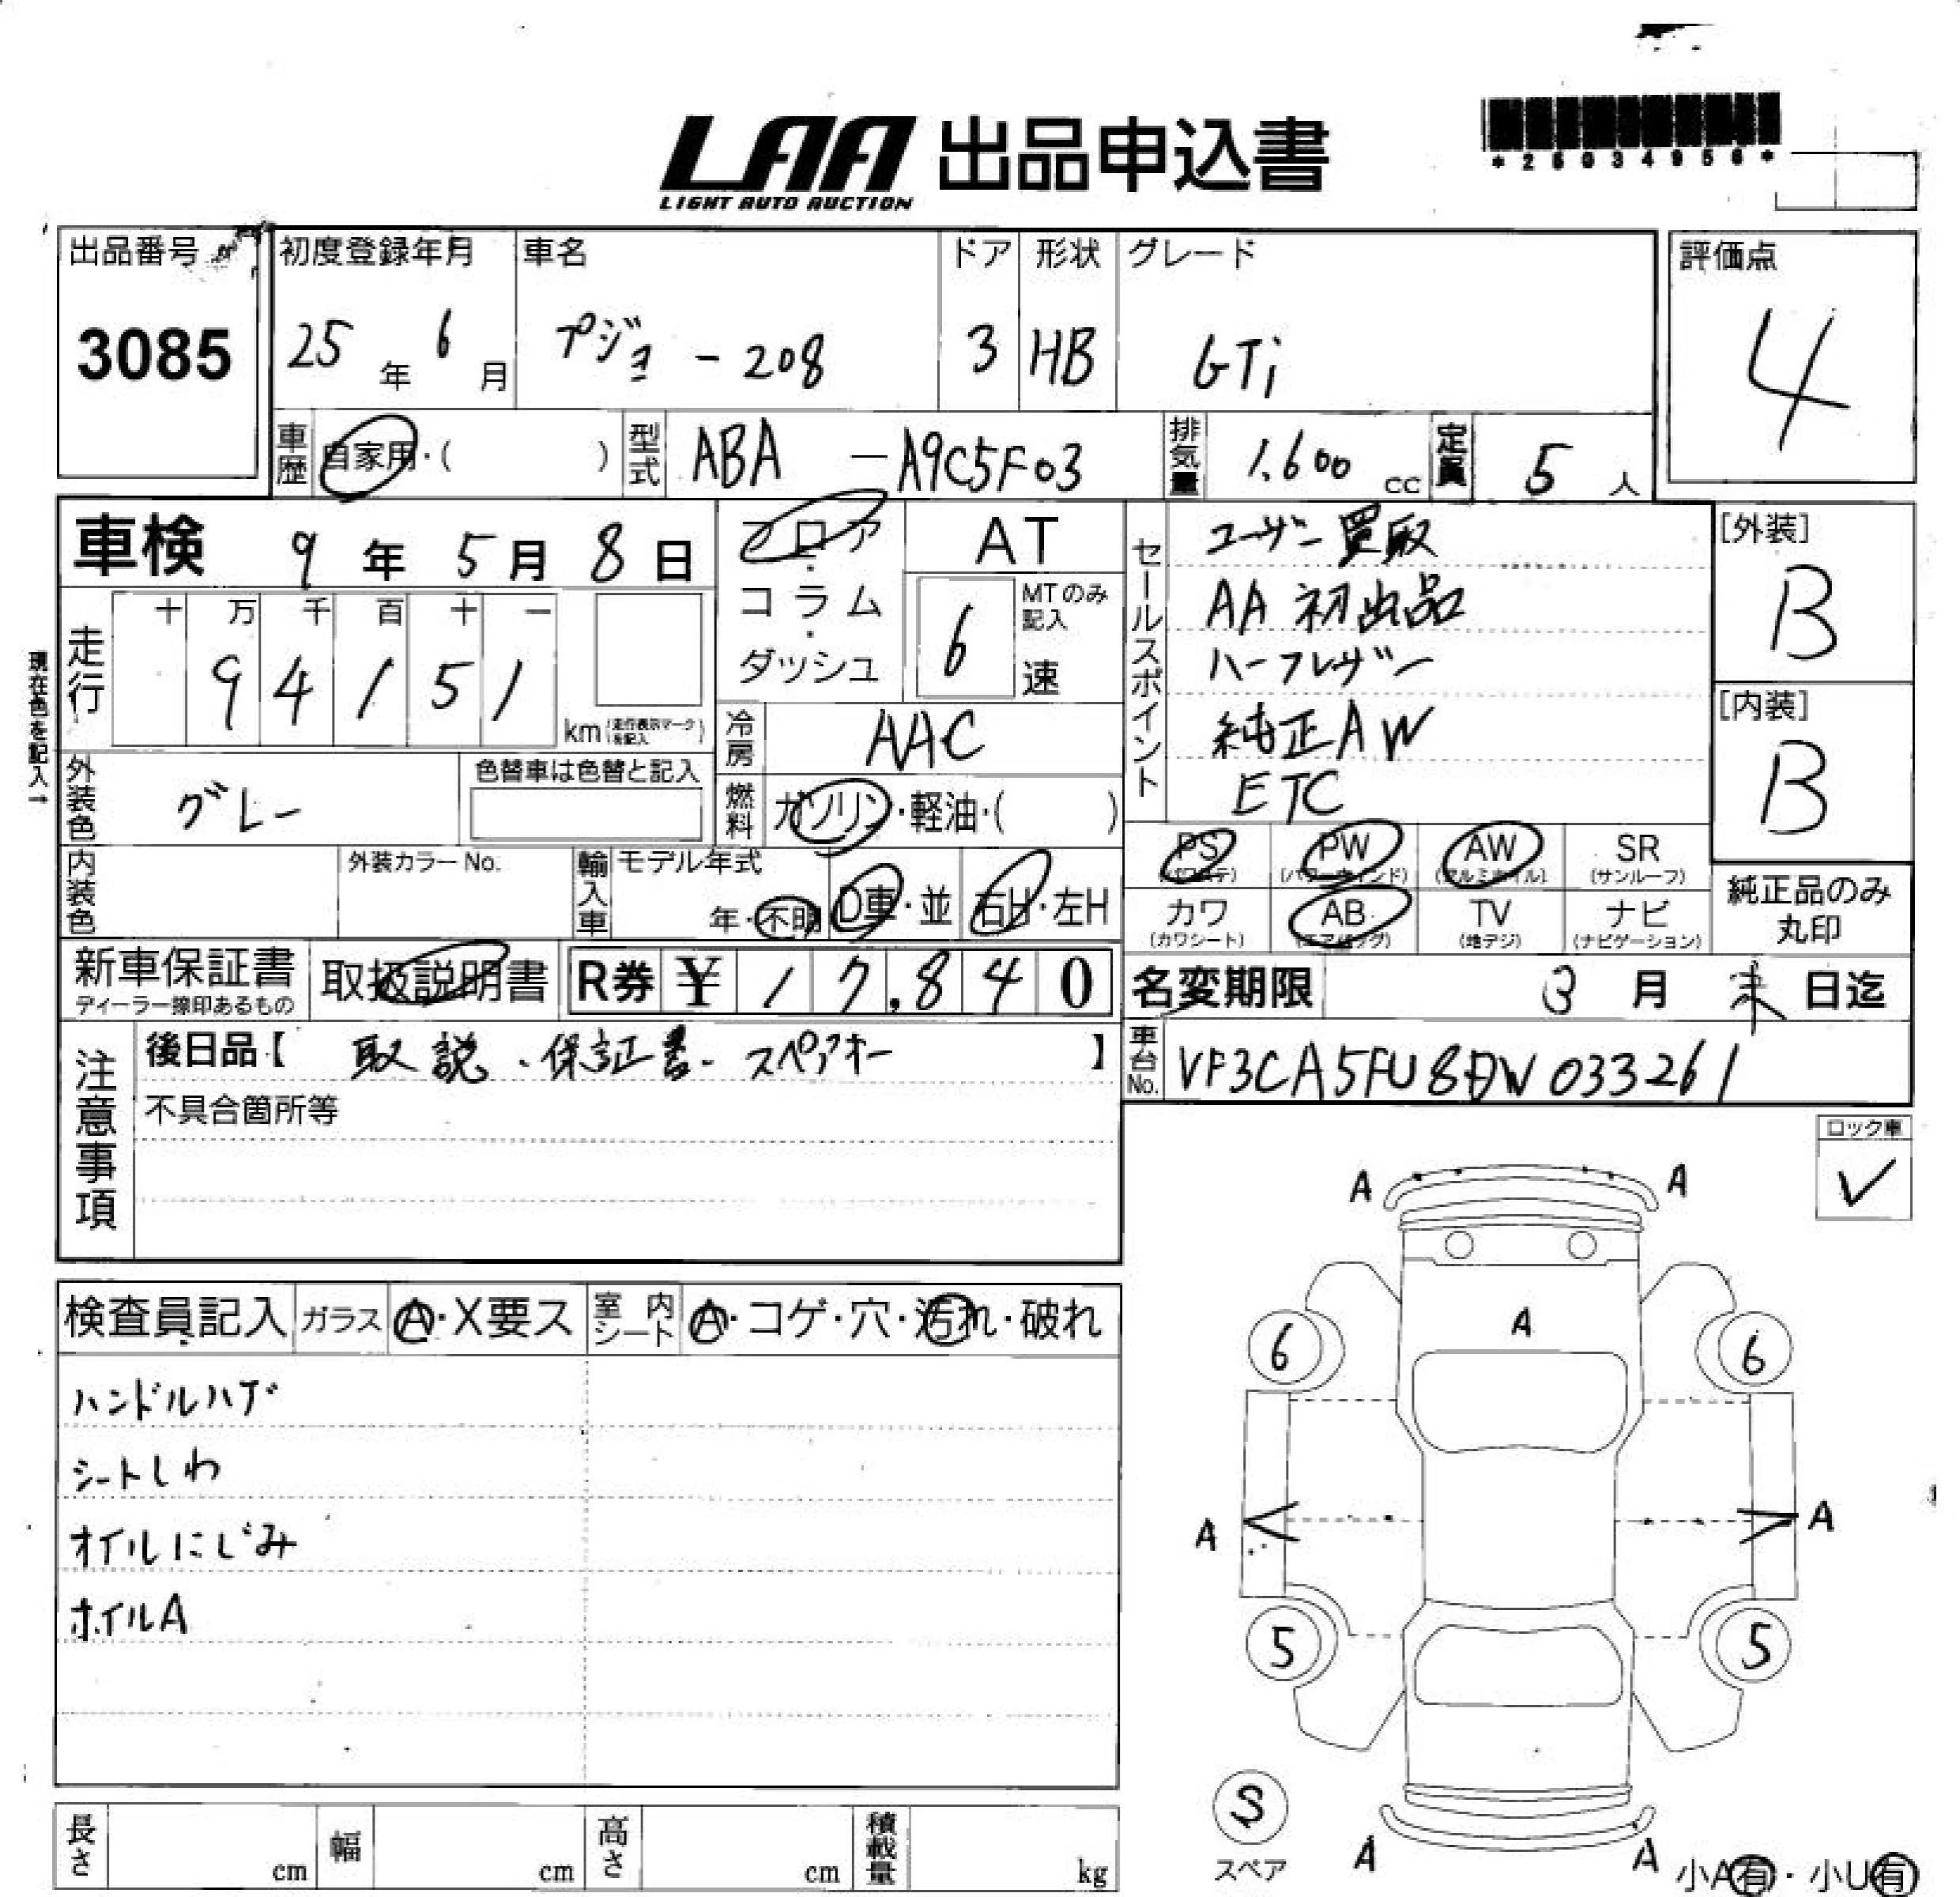 LAA 出品申込書
LIGHT AUTO AUCTION
*26034956*
出品番号 初度登録年月 車名 ドア 形状 グレード 評価点
3085 25年 6月 プジョー208 3 HB GTi 4
車歴 自家用・( ) 型式 ABA-A9C5F03 排気量 1.600 cc 定員 5人
車検 9年 5月 8日
フロア・コラム・ダッシュ
AT
6 MTのみ記入 速
セールスポイント
ユーザー買取
AA初出品
ハーフレザー
純正AW
ETC
[外装]
B
[内装]
B
現在色を記入→
走行 十 万 千 百 十 一
94151 km(走行表示マークを記入)
冷房 AAC
外装色 グレー 色替車は色替と記入
燃料 ガソリン・軽油・( )
内装色 外装カラーNo. 輸入車 モデル年式 年・不明 D車・並 右H・左H
PS(パワステ) PW(パワーウィンド) AW(アルミホイル) SR(サンルーフ)
カワ(カワシート) AB(エアバッグ) TV(地デジ) ナビ(ナビゲーション)
純正品のみ丸印
新車保証書 ディーラー捺印あるもの 取扱説明書 R券 ¥17,840
名変期限 3月 末日迄
注意事項
後日品【 取説・保証書・スペアキー 】
不具合箇所等
車台No. VF3CA5FU8DW033261
ロック車
✓
検査員記入 ガラス A・X要ス 室内シート A・コゲ・穴・汚れ・破れ
ハンドルハゲ
シートしわ
オイルにじみ
ホイルA
A A
A
6 6
A A
5 5
S
スペア
A A
小A有・小U有
長さ cm 幅 cm 高さ cm 積載量 kg